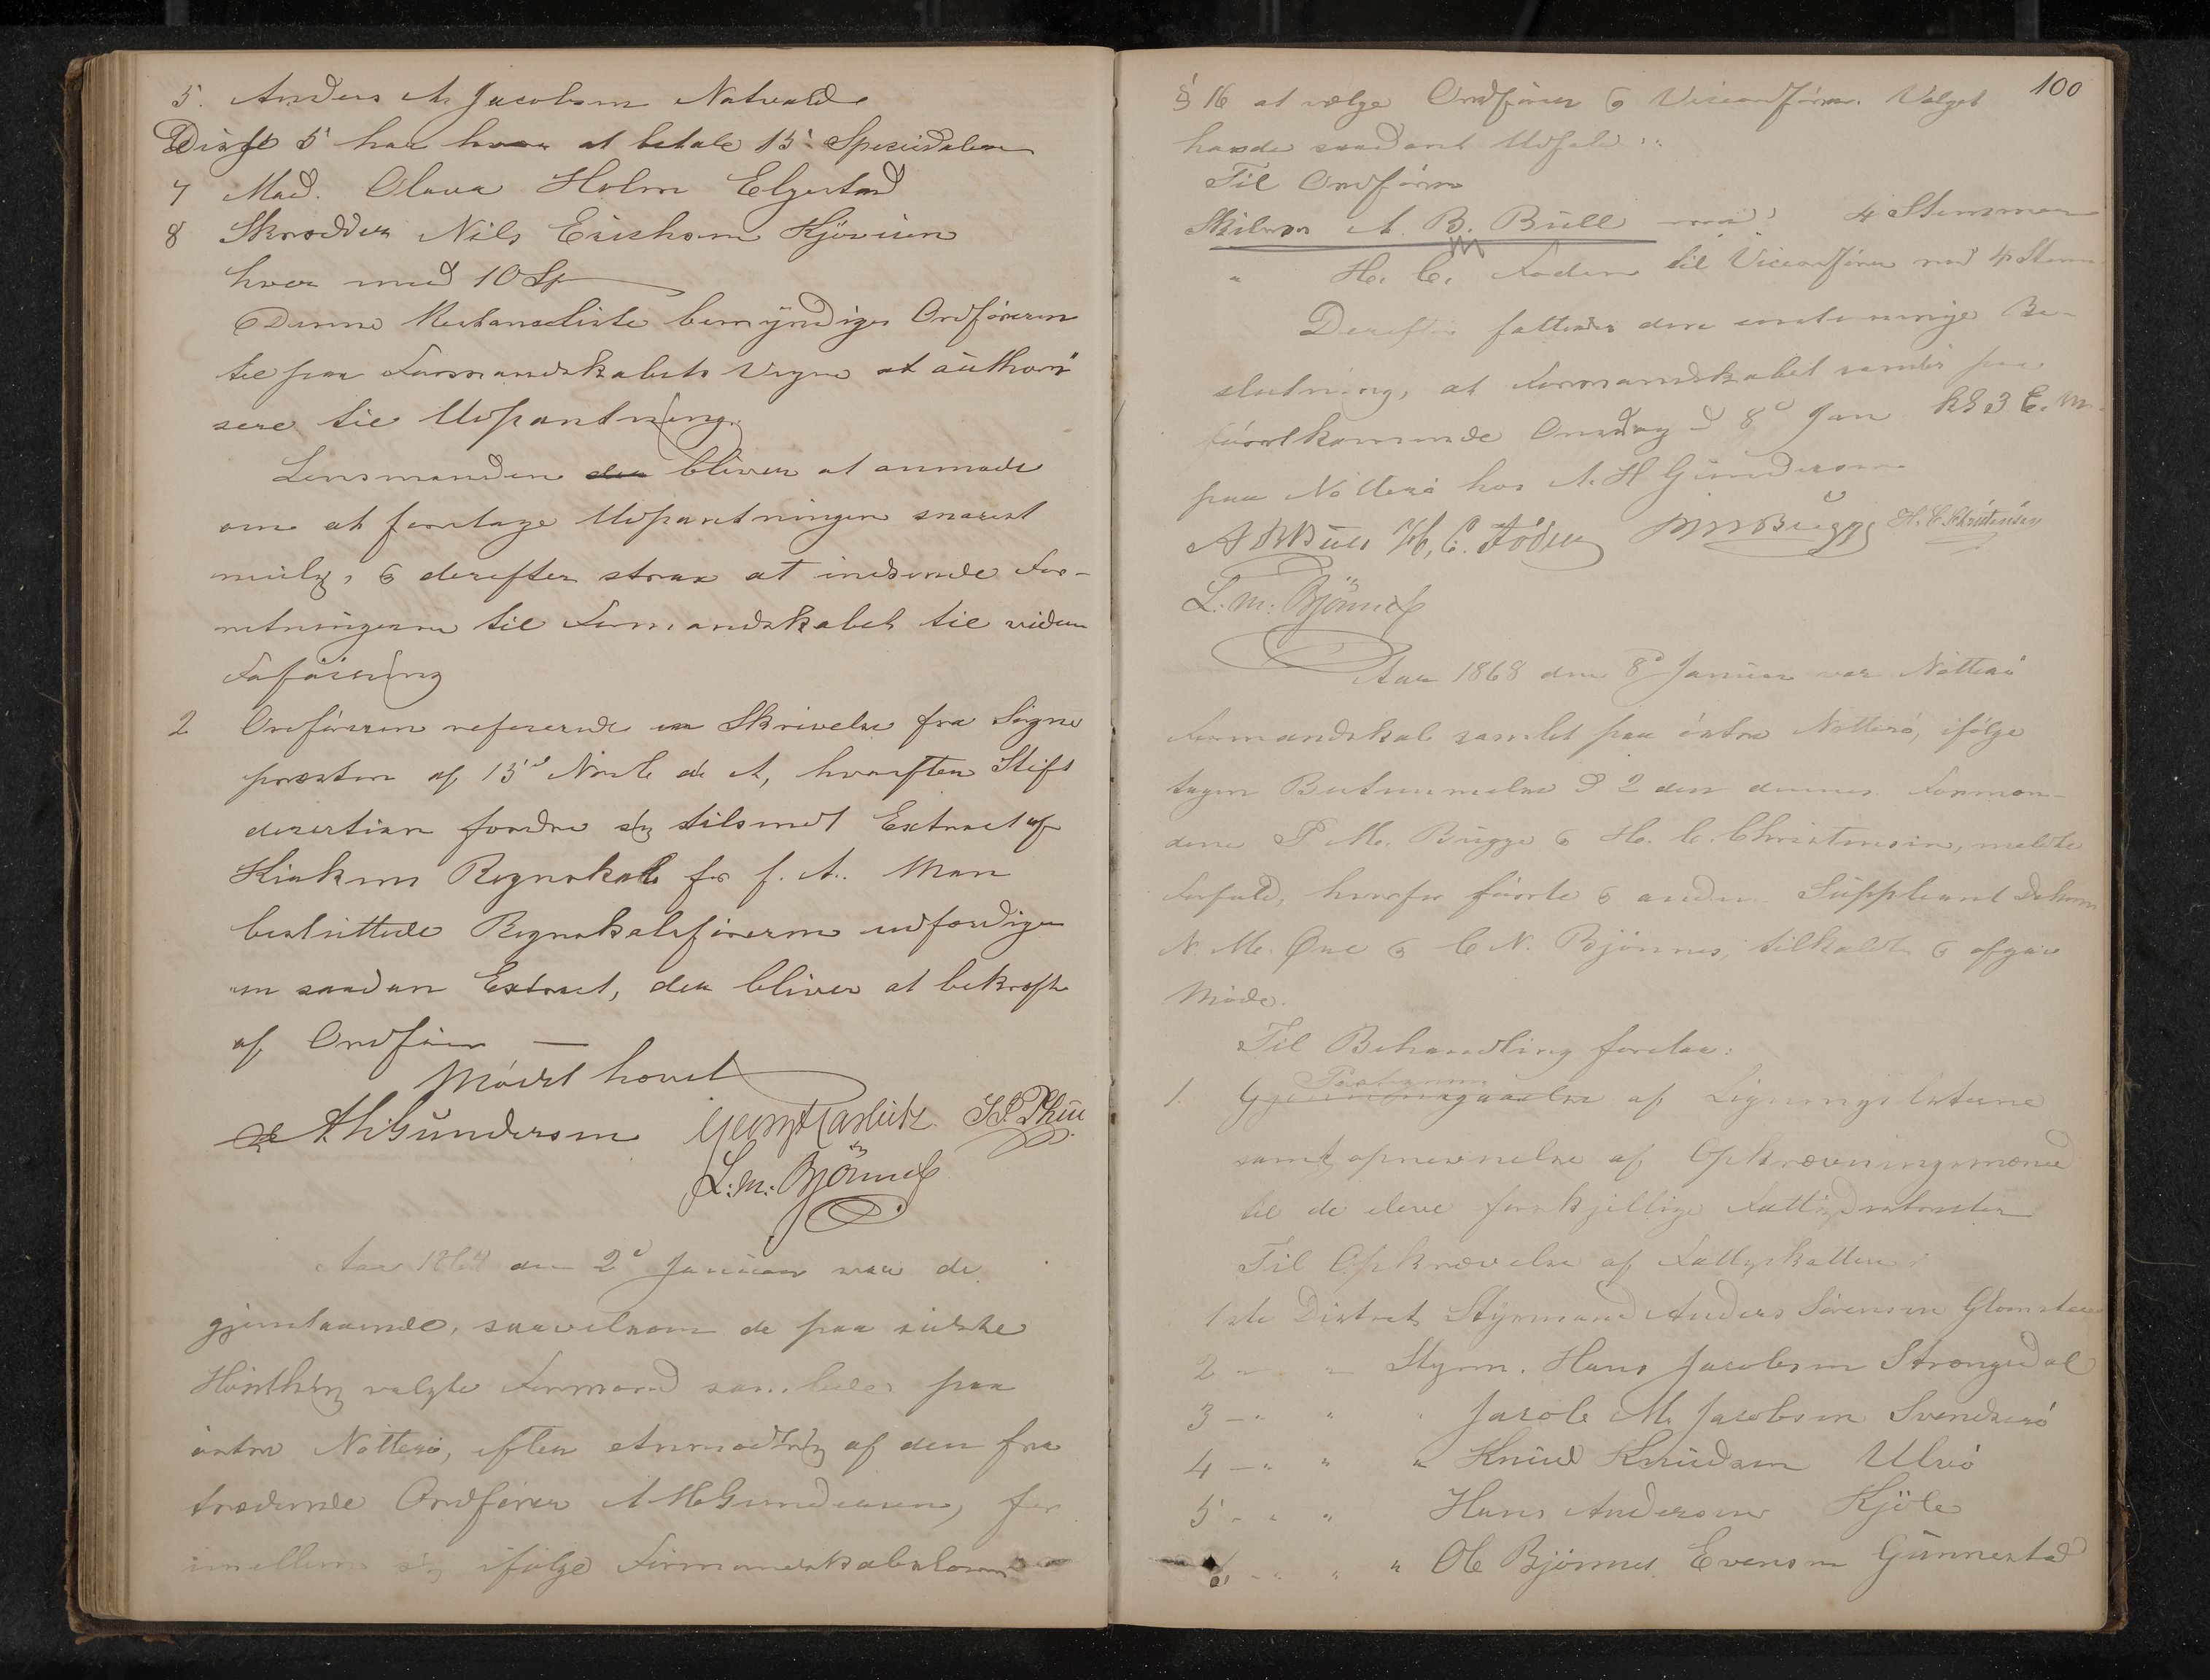 5. Anders A. Jacobsen Natvald
Disse 5 har hver at betale 15 Speciedaler
7 Mad. Olava Holm Elgestad
8 Skrædder Nils Erichsen
hver med 10 Sp
Denne Restanseliste bemyndiges Ordføreren
til paa Formandskabets Vegne at authori
sere til Udpantning.
Lensmanden bliver at anmode
om at foretage Udpantningen snarest
mulig, & derefter strax at indsende For-
retningerne til Formandskabet til videre
Føføining
2 Ordføreren refererede en Skrivelse fra Sogne
præsten af 15d Novb d. A, hvorefter Stifts
direction fordre sig tilsendt Extract af
Kirkens Regnskab for f. A. Man
besluttede Regnskabsføreren udfærdiger
en saadan Extract, der bliver at bekræfte
af Ordfører —
Mødet hævet
A H Gundersen
L. M. Bjönnes
Aar 1868 den 2d Januar var de
gjenstaaende, saavelsom de paa sidste
valgte Formænd samlede paa
östre Nötterö, efter Anmodning af den fra
trædende Ordfører A H Gundersen, for
imellem sig ifölge Formandskabsloven
100
§ 16 at vælge Ordfører & Viceordfører. Valget
havde saadant Udfald:
Til Ordfører
A. B. Bull med 4 Stemmer
" H. C. Foden til Viceordfører med 4 Stem
Derefter fattedes den eenstemmige Be-
slutning, at Formandskabet samles paa
förstkommende Onsdag d 8d Jan Kl 3 E. M.
paa Nötterö hos A. H Gundersen
A B Bull H. C. Föden P M Bugge H. C. Christensen
L. M. Bjönnes
Aar 1868 den 8d Januar var Nötterö
Formandskab samlet paa östre Nötterö, ifölge
tagen Bestemmelse d 2 den dennes. Forman-
dene P. M. Bugge & H. C. Christensen, meldte
Forfald, hvorfor förste & anden Suppleant
N. M. & C N. Bjönnes, tilkaldt & afgav
Möde.
Til Behandling forelaa:
1. af Ligningslisterne
samt opnevnelse af Opkrævningsmænd
til de elleve forskjellige Fattigdistrikter
Til Opkrævelse af Fattigskatten:
1ste District Styrmand Anders Sörensen
2 " " Styrm. Hans Jacobsen Strengsdal
3 " " " Jacob M. Jacobsen Svendserö
4 " " " Knud Knudsen Ulvö
5 " " Hans Andersen Kjöle
6 " " " Ole Bjönnes Evensen Gunnestad